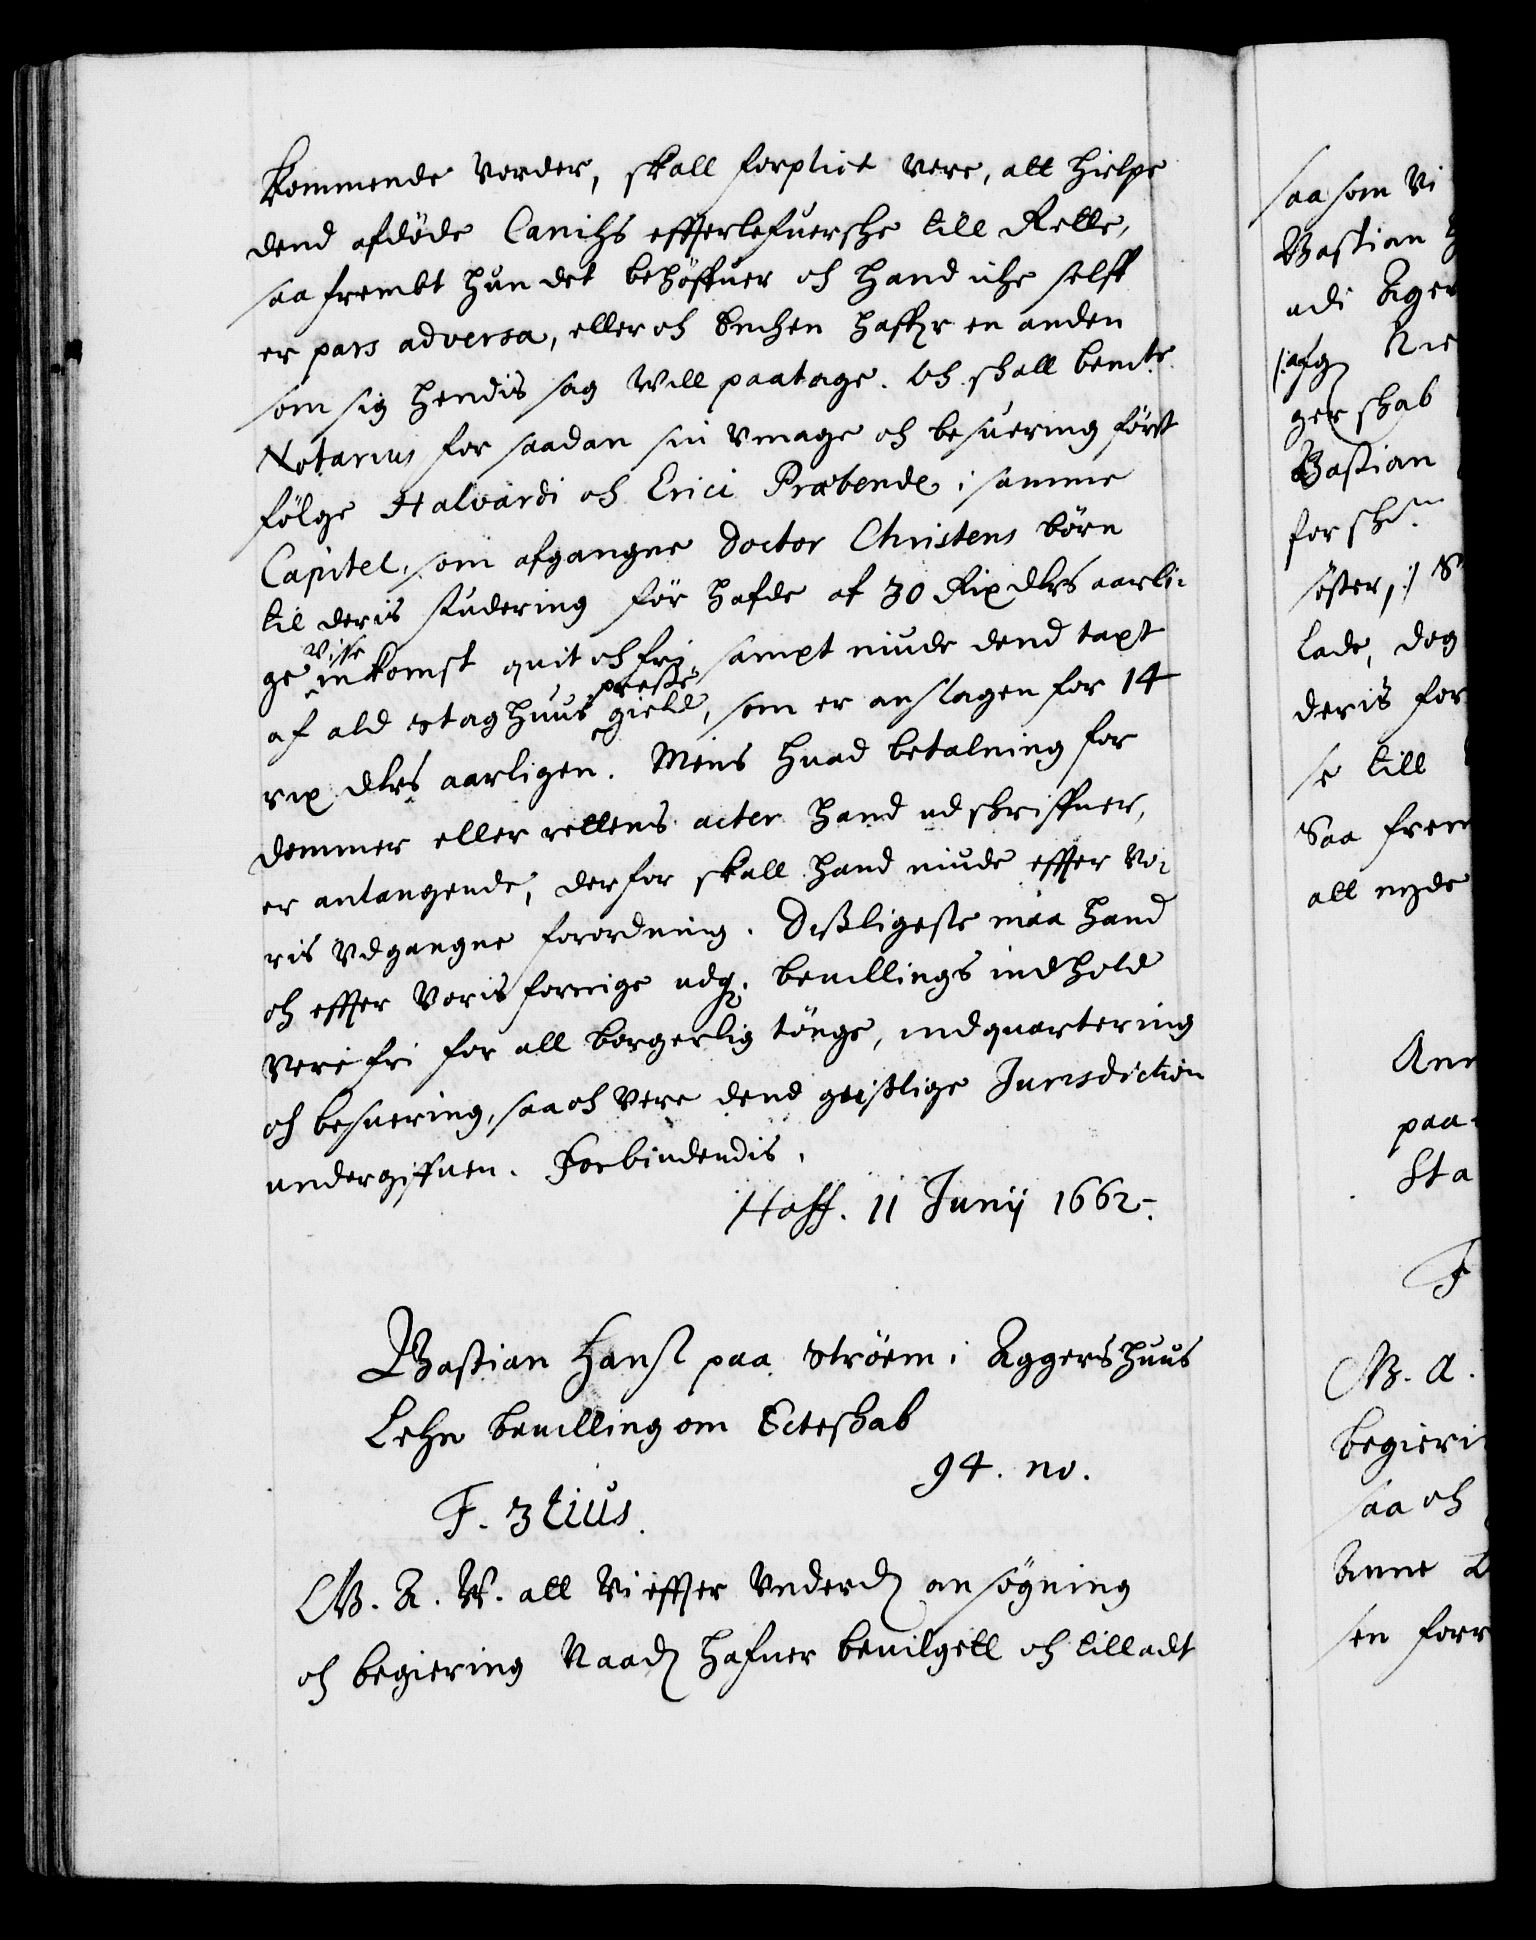 kommende vorder, skall forplict vere, att hielpe
dend afdöde Canichs effterlefuerske till Rette,
saa frembt hun det behöffuer och hand iche selff
er pars adversa, eller och Enchen haffr en anden
som sig hendis sag Will paatage. Och skall bemte
Notarius for saadan sin Vmage och besuering först
fölge Halvardi och Erici Præbende i samme
Capitel, som afgangne Doctor Christens börn
til deris studering för hafde af 30 Rix dlrs aarli-
ge visse inkomst quit och fri, sampt niude dend taxt
af ald Staghuus preste gield, som er anslagen for 14
rix dlrs aarligen. Mens huad betalning for
dommer eller rettens acter hand udskriffuer,
er anlangende, derfor skall hand niude effter Vo-
ris Vdgangne forordning. Dißligeste maa hand
och effter Voris forrige udg. beuillings indhold
vere fri for all borgerlig tönge, indquartering
och besuering, saa och vere dend geistlige Jurisdiction
undergiffuen. Forbindendis.
Haff. 11 Junij 1662.
Bastian Hanß paa Ströem i Aggershuus
Lehn beuilling om Ecteskab
94. no.
F. 3tius.
G.A.W. att Vi effter Underd. ansögning
och begiering Naad. hafuer beuilgett och tilladt
saa som Vi
Bastian
udi Ager
/:afg
gerskab
Bastian
forschn
söster,:/ S
lade, dog
deris for
se till
Saa frem
att nyde
Ann
paa
Sta
F
G. A.
begieri
saa och
Anne
sen forr